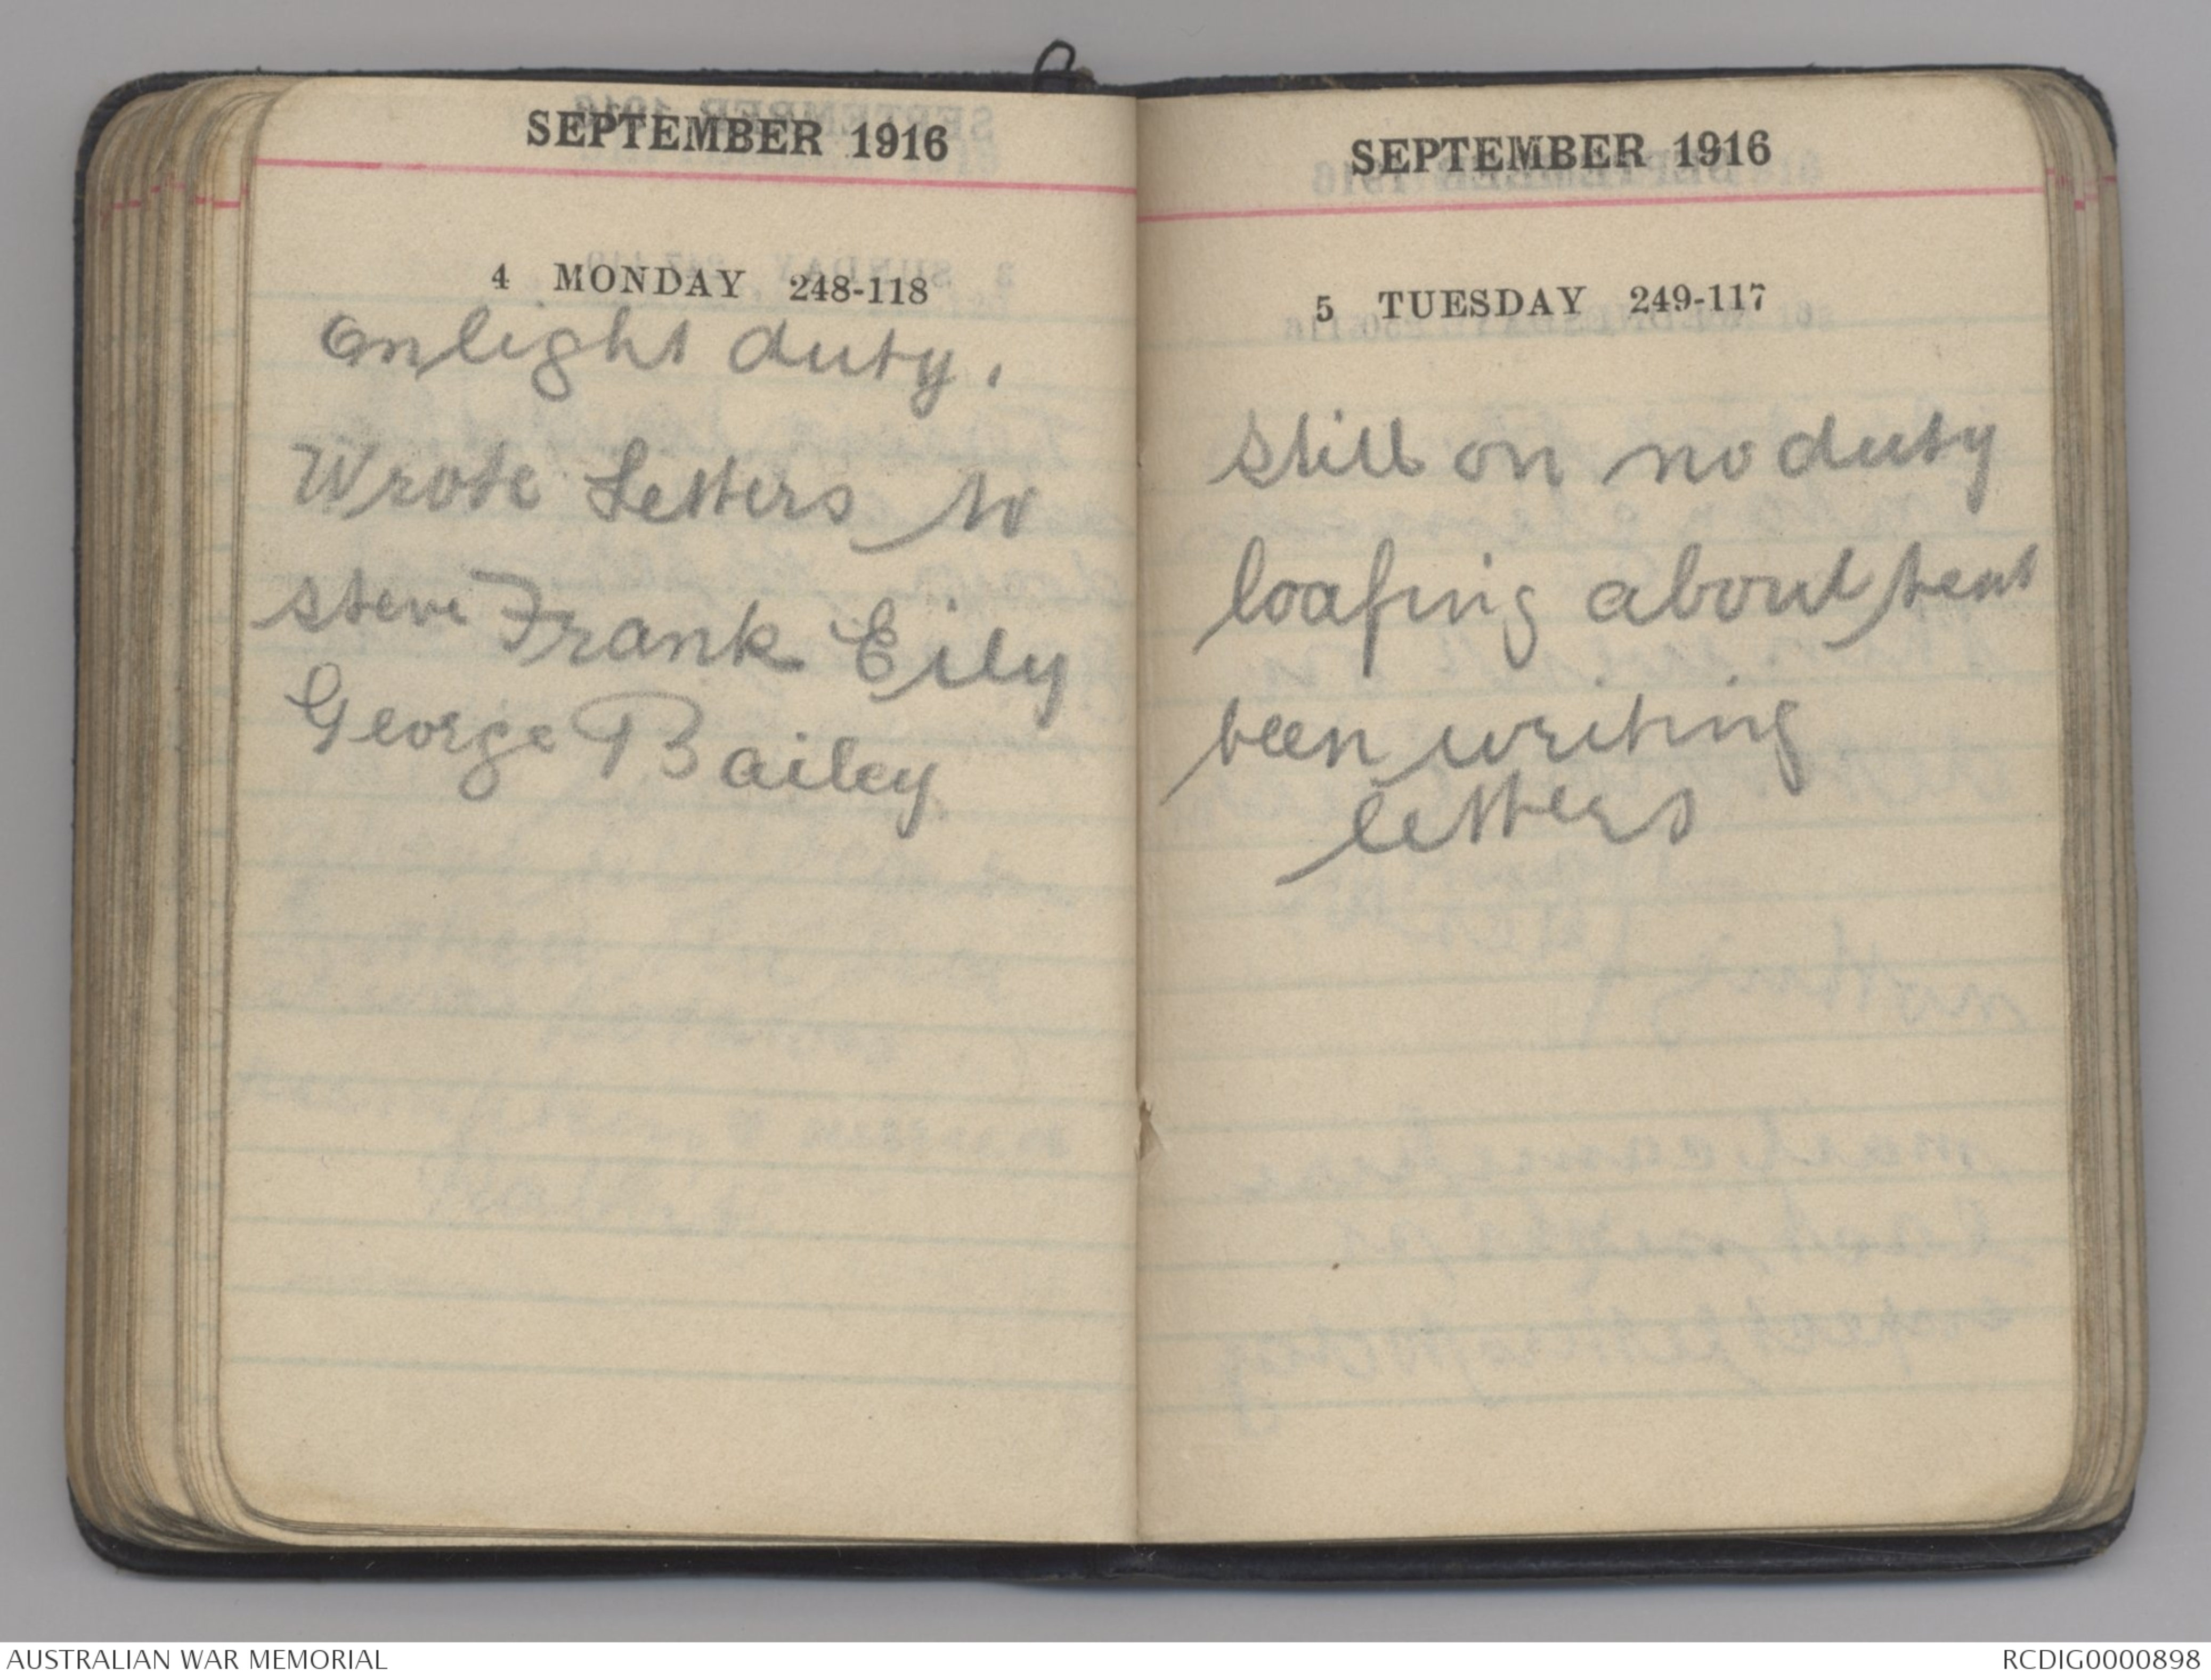 SEPTEMBER 1916
4 MONDAY 248-118
On light duty.
Wrote Letters to
Steve Frank Eily
George Bailey
SEPTEMBER 1916
5 TUESDAY 249-117
still on no duty
loafing about tent
been writing
letters
AUSTRALIAN WAR MEMORIAL
RCDIG0000898